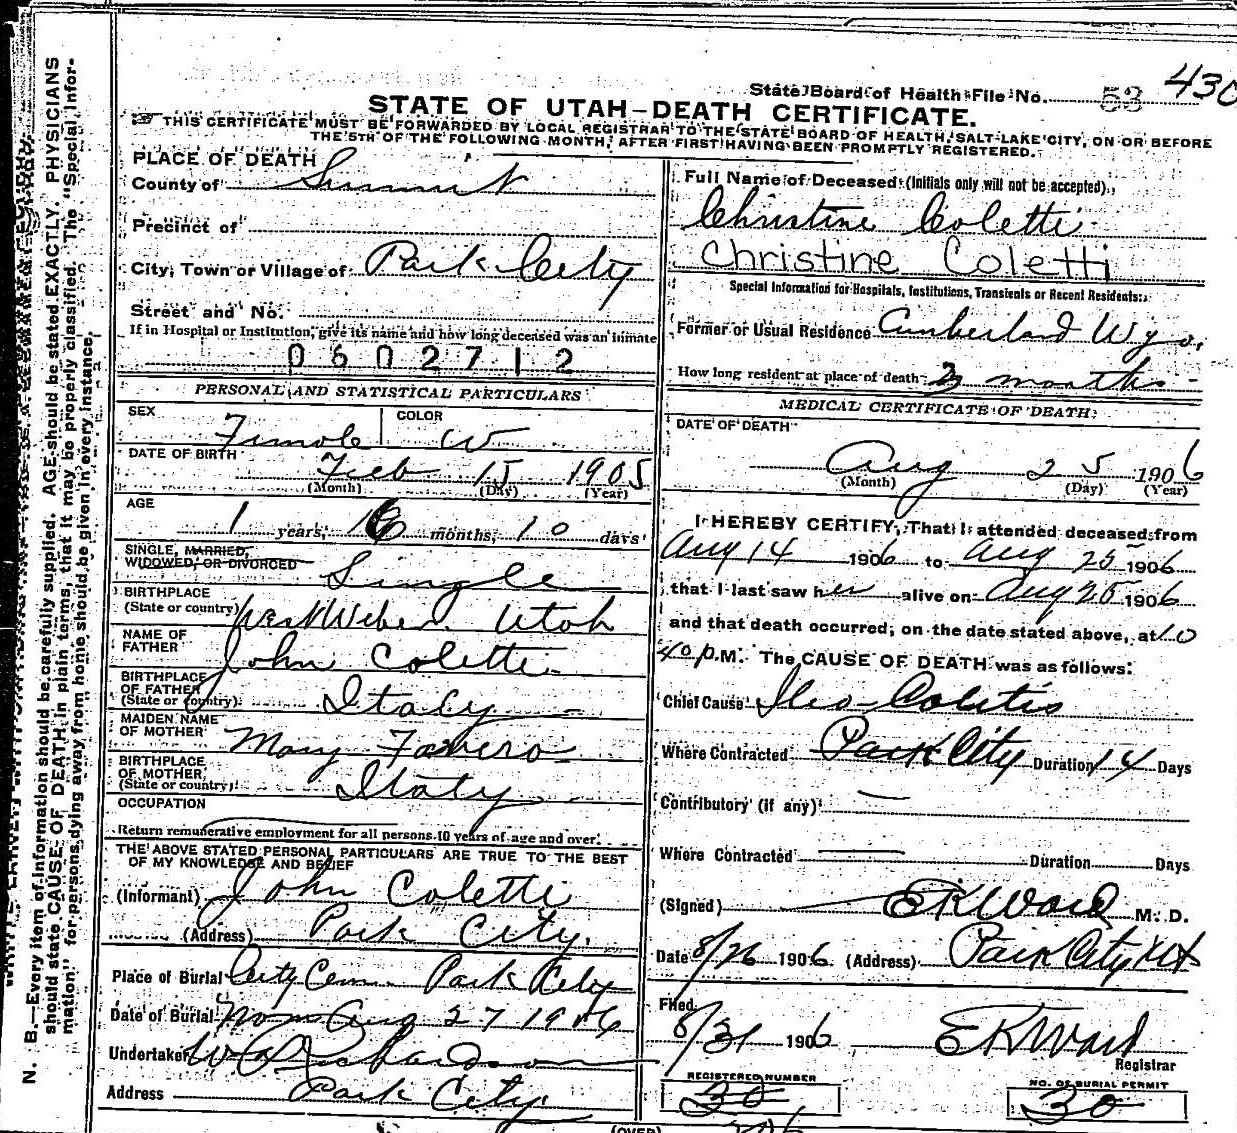 430
State Board of Health File No. 53
STATE OF UTAH—DEATH CERTIFICATE.
THIS CERTIFICATE MUST BE FORWARDED BY LOCAL REGISTRAR TO THE STATE BOARD OF HEALTH, SALT LAKE CITY, ON OR BEFORE
THE 5TH OF THE FOLLOWING MONTH, AFTER FIRST HAVING BEEN PROMPTLY REGISTERED.
PLACE OF DEATH
County of Summit
Precinct of
City, Town or Village of Park City
Street and No.
If in Hospital or Institution, give its name and how long deceased was an inmate
0602712
PERSONAL AND STATISTICAL PARTICULARS
SEX Female COLOR W
DATE OF BIRTH Feb 15 1905
(Month) (Day) (Year)
AGE
1 years, 6 months, 10 days
SINGLE, MARRIED,
WIDOWED, OR DIVORCED Single
BIRTHPLACE
(State or country) West Weber Utah
NAME OF
FATHER John Coletti
BIRTHPLACE
OF FATHER
(State or country) Italy
MAIDEN NAME
OF MOTHER Mary
BIRTHPLACE
OF MOTHER
(State or country) Italy
OCCUPATION
Return remunerative employment for all persons 10 years of age and over.
THE ABOVE STATED PERSONAL PARTICULARS ARE TRUE TO THE BEST
OF MY KNOWLEDGE AND BELIEF
(Informant) John Coletti
(Address) Park City.
Place of Burial City Cem. Park City
Date of Burial Aug 27 1906
Undertaker W Richardson
Address Park City.
Full Name of Deceased (Initials only will not be accepted).
Christine Coletti
Christine Coletti
Special Information for Hospitals, Institutions, Transients or Recent Residents:
Former or Usual Residence Cumberland Wyo.
How long resident at place of death months
MEDICAL CERTIFICATE OF DEATH
DATE OF DEATH
Aug 25 1906
(Month) (Day) (Year)
I HEREBY CERTIFY, That I attended deceased from
Aug 14 1906 to Aug 25 1906
that I last saw her alive on Aug 25 1906
and that death occurred, on the date stated above, at 10
40 P.M. The CAUSE OF DEATH was as follows:
Chief Cause Ileo-Colitis
Where Contracted Park City Duration 14 Days
Contributory (if any)
Where Contracted Duration Days
(Signed) EKWard M. D.
Date 8/26 1906 (Address) Park City Ut
Filed
8/31 1906 EKWard
Registrar
REGISTERED NUMBER
30
NO. OF BURIAL PERMIT
30
(OVER)
N. B.—Every item of information should be carefully supplied. AGE should be stated EXACTLY. PHYSICIANS
should state CAUSE OF DEATH in plain terms, that it may be properly classified. The "Special Infor-
mation" for persons dying away from home should be given in every instance.